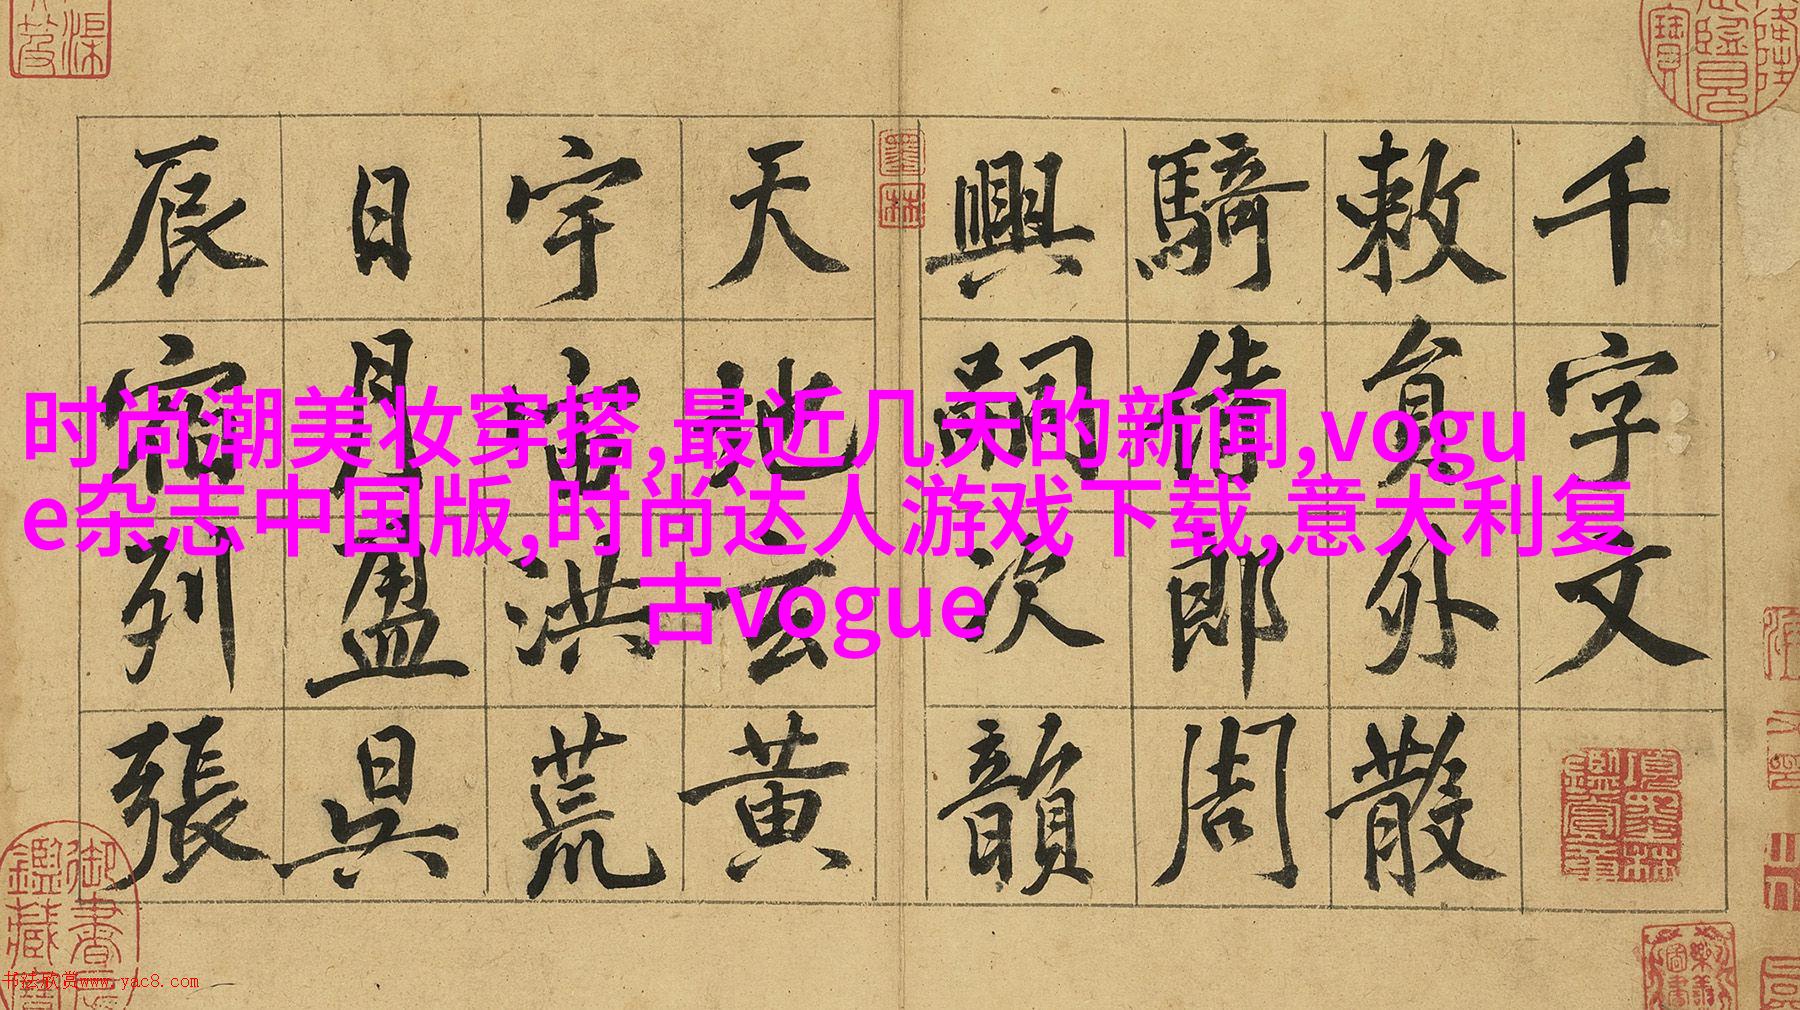 时尚潮美妆穿搭,最近几天的新闻,vogu
e杂志中国版,时尚达人游戏下载,意大利复
古vogue
千字文
敕員外散
騎侍郎周
興嗣次韻
天地玄黄
宇宙洪荒
日月盈昃
辰宿列張
墨林
項墨林鑑賞章
书法欣赏www.yac8.com